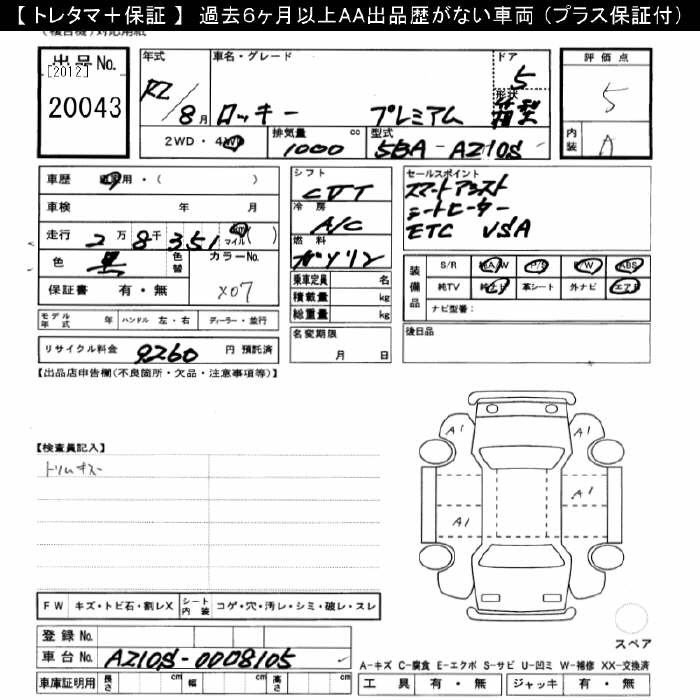 【トレタマ＋保証】 過去6ヶ月以上AA出品歴がない車両（プラス保証付）
出品No.
[2012]
20043
年式 車名・グレード ドア 5
R2/8月 ロッキー プレミアム 形状 箱型
2WD・4WD 排気量 1000 cc 型式 5BA-A210S
評価点
5
内装 A
車歴 自家用・( )
車検 年 月
走行 2万8千351 km マイル ( )
色 黒 色替 カラーNo. X07
保証書 有・無
シフト CVT
冷房 A/C
燃料 ガソリン
乗車定員 名
積載量 kg
総重量 kg
名変期限
月 日
セールスポイント
スマートアシスト
シートヒーター
ETC VSA
装備品 S/R 純A/W P/S P/W ABS
純TV 純ナビ 革シート 外ナビ エアB
ナビ型番：
後日品
モデル年式 ハンドル 左・右 ディーラー・並行
リサイクル料金 9260 円 預託済
【出品店申告欄(不良箇所・欠品・注意事項等)】
【検査員記入】
トリムキズ
A1 A1
A1
A1
FW キズ・トビ石・割レX シート内装 コゲ・穴・汚レ・シミ・破レ・スレ
登録No.
車台No. A210S-0008105
スペア
A-キズ C-腐食 E-エクボ S-サビ U-凹ミ W-補修 XX-交換済
車庫証明用 長さ cm 幅 cm 高さ cm
工具 有・無 ジャッキ 有・無